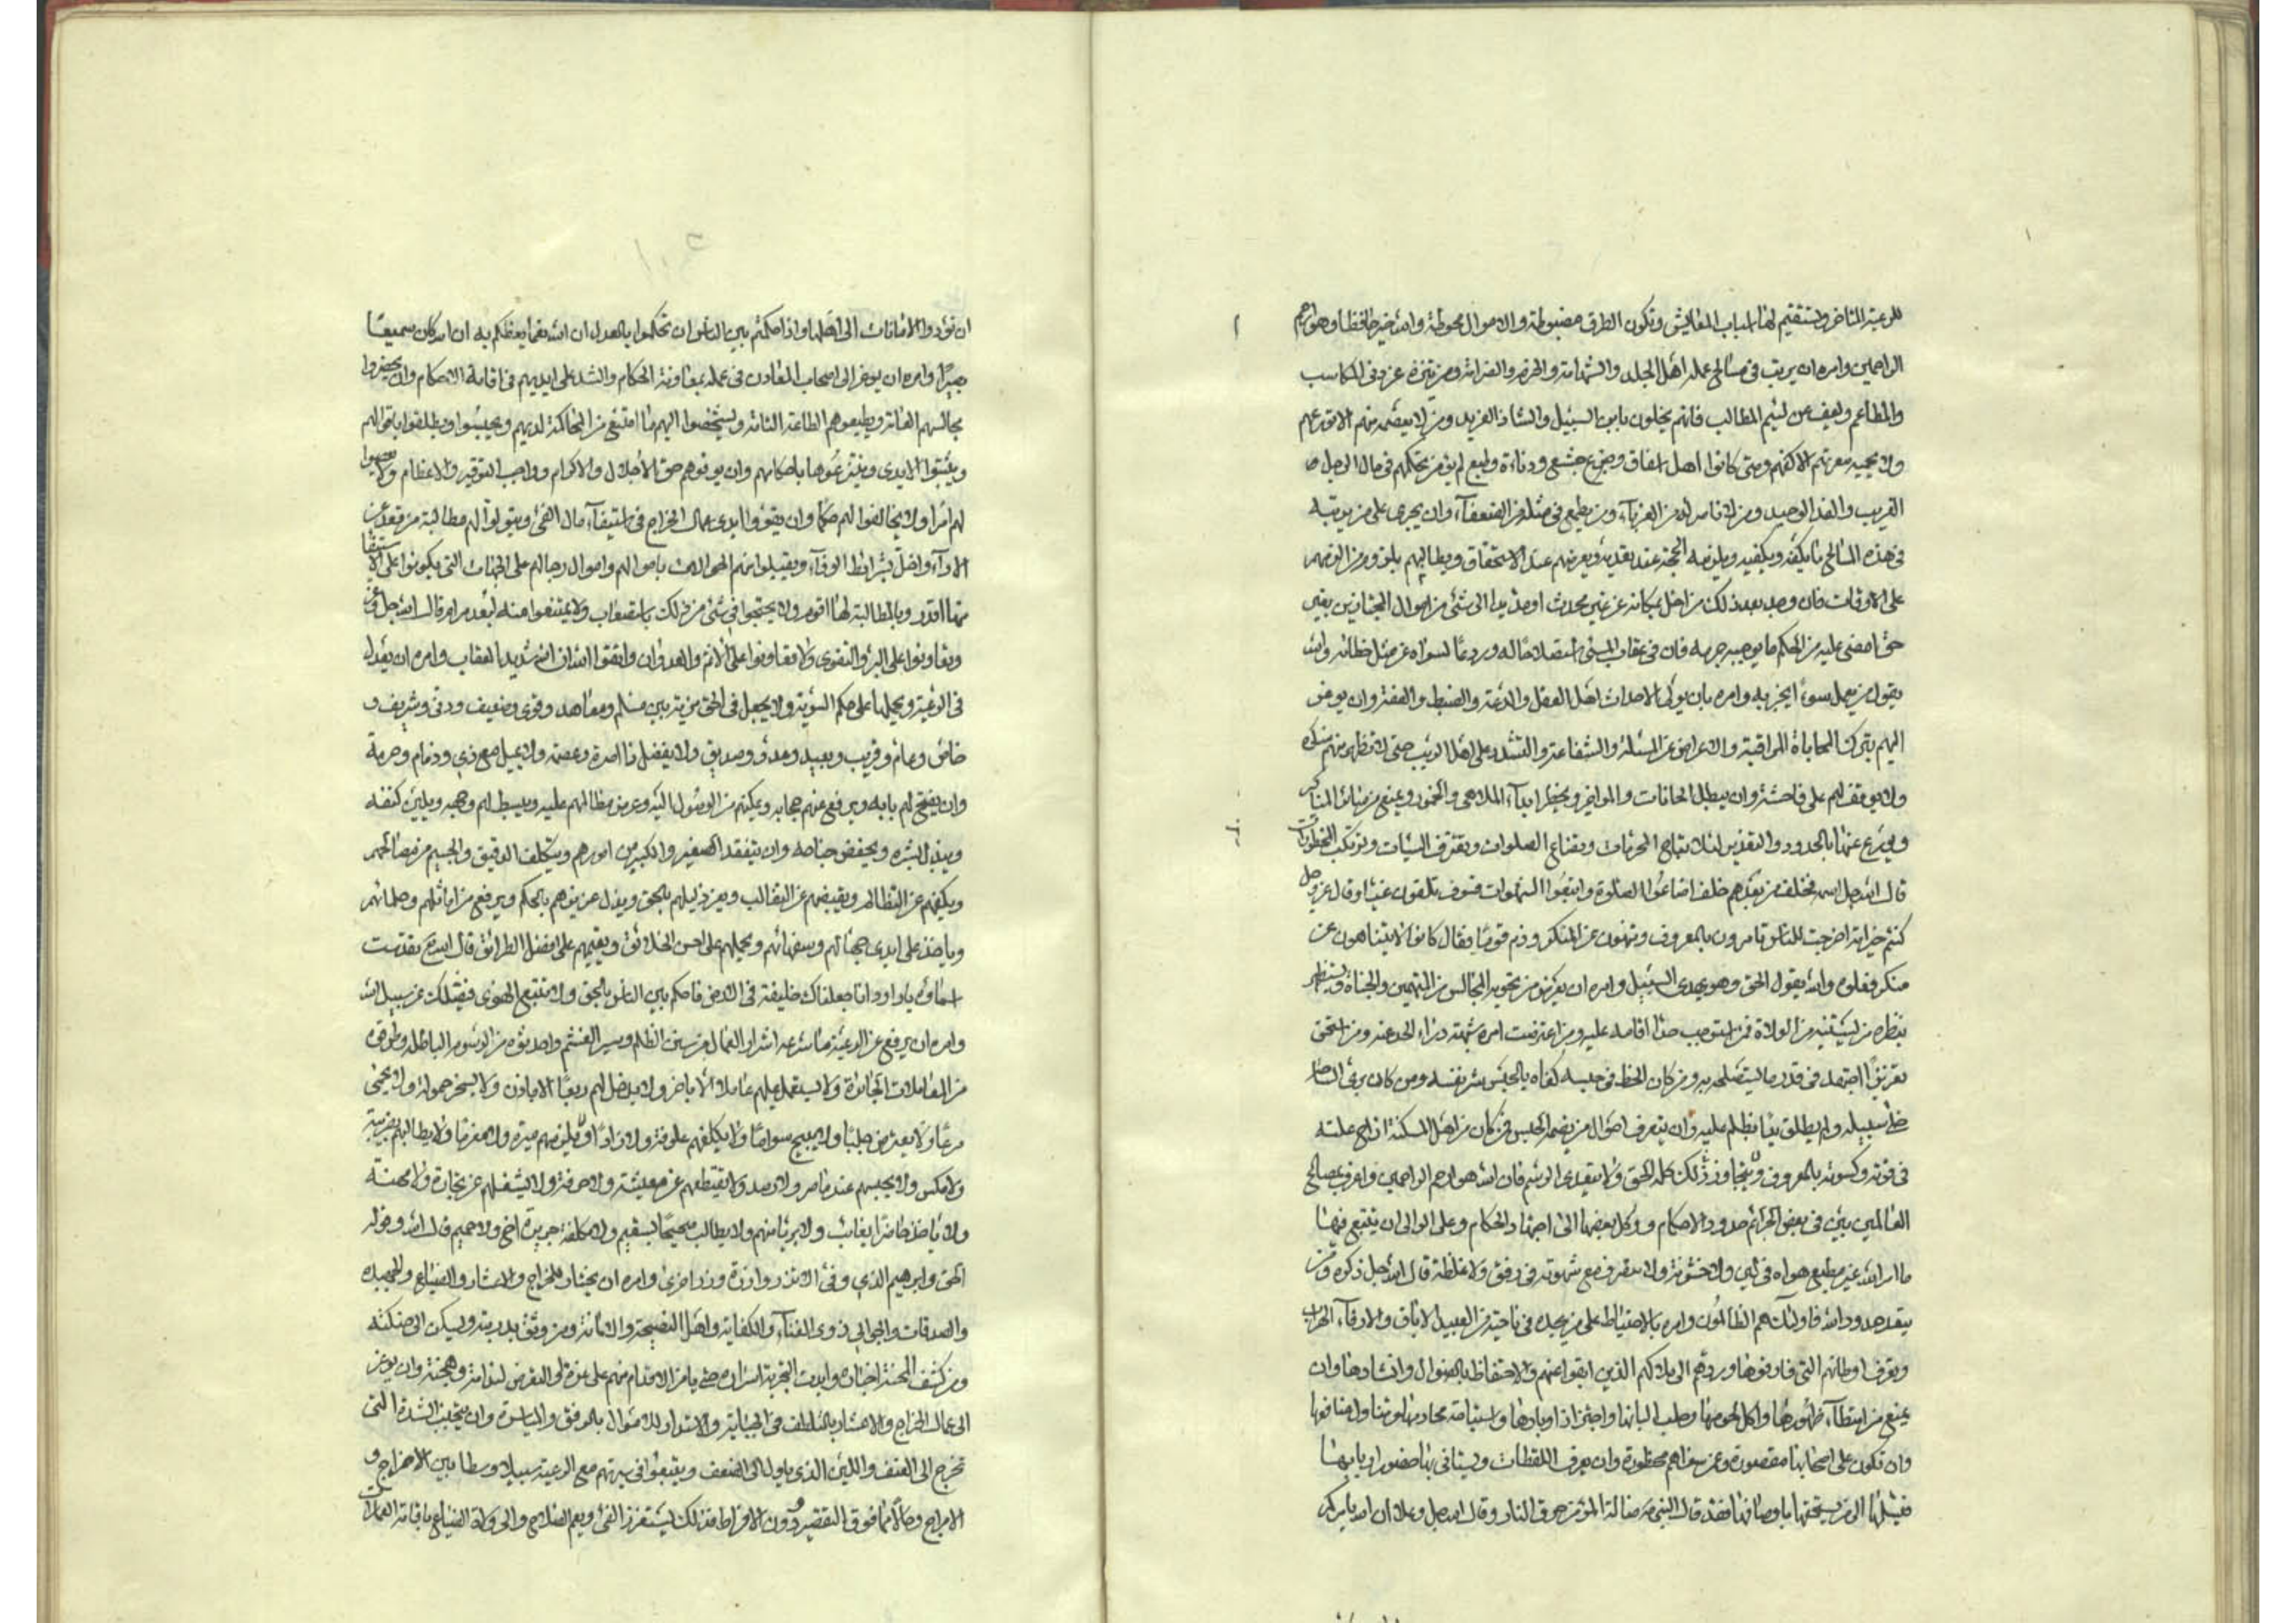 للرعية المتاجر وتستقيم لها اسباب المعايش وتكون الطرق مضبوطة والاموال محوطة والله خير حافظا وهو ارحم
الراحمين وامره ان يرتب في مسالح عمله اهل الجلد والشهامة والحزم والصرامة ومن يتنزه عن دني المكاسب
والمطاعم ويعف عن لئيم المطالب فانهم يخلون بابن السبيل والشاذ الفريد ومن لا يعصمه منهم الا تورعهم
ولا يحميه معرتهم الا كفهم ومتى كانوا اهل اسفاف وجزع جشع ودناءة وطبع لم يؤمن تحكمهم في مال الرجل
الغريب والفذ الوحيد ومن لا ناصر له من الغرباء ومن يطمع في مثله من الضعفاء وان يجري على من يرتبه
في هذه المسالح ما يكفه ويكفيه ويلزمه الحجة عند تعديه ويعرضهم عند الاستحقاق ويطالبهم بلزوم مراكزهم
على الاوقات فان وجد بعد ذلك من اخل بمكانه عن غير محدث او مد يدا الى شئ من اموال المجتازين بغير
حق امضى عليه من الحكم ما يوجبه جرمه فان في عقاب المسئ استصلاحا له وردعا لسواه عن مثل خطائه والله
يقول من يعمل سوءا يجز به وامره بان يولي الاحداث اهل العقل والدعة والضبط والعفة وان يوعز
اليهم بترك المحاباة والمراقبة والاعراض عن المسئلة والشفاعة والتشدد على اهل الريب حتى لا تظهر منهم منكرة
ولا يوقف لهم على فاحشة وان يبطل الحانات والمواخير ويحظر ابداء الملاهي والخمور ويمنع من سائر المناكر
ويزع عنها بالحدود والتعذير لئلا تباح المحرمات وتضاع الصلوات وتقترف السيئات وترتكب المحظورات
قال الله جل اسمه فخلف من بعدهم خلف اضاعوا الصلوة واتبعوا الشهوات فسوف يلقون غيا وقال عز وجل
كنتم خير امة اخرجت للناس تامرون بالمعروف وتنهون عن المنكر وذم قوما فقال كانوا لا يتناهون عن
منكر فعلوه والله يقول الحق وهو يهدي السبيل وامره ان يعرض من تحويه المجالس من المتهمين والجناة ويستظهر
بنظره من يستنيبه من الولاة فمن استوجب حدا اقامه عليه ومن اعترضت امره شبهة درأ الحد عنه ومن استحق
تعزيرا اجتهد في قدر ما يستصلحه به ومن كان الحظ في حبسه كفاه بالحبس شر نفسه ومن كان برئ الساحة
خلى سبيله ولم يطلق فيما تظلم عليه وان يتعرف احوال من يضمه الحبس فمن كان من اهل المسكنة ازاح علته
في قوته وكسوته بالمعروف ولا يتجاوز في ذلك كله الحق ولا يتعدى الرسم فان الله هو ارحم الراحمين واعرف بمصالح
العالمين بين في بعض الجرائم حدود الاحكام ووكل بعضها الى اجتهاد الحكام وعلى الوالي ان يتبع فيها
ما امر الله غير مطيع هواه في لين ولا خشونة ولا متصرف مع شهوته في رفق ولا غلظة قال الله جل ذكره ومن
يتعد حدود الله فاولئك هم الظالمون وامره بالاحتياط على من يجده في ناحية من العبيد الاباق والارقاء الهراب
وتعرف اوطانهم التي فارقوها وردهم الى ملاكهم الذين ابقوا عنهم والاحتفاظ بالضوال وانشادها وان
يمنع من امتطاء ظهورها واكل لحومها وحلب البانها واجتزاز اوبارها واستباحة محارمها وتناول منافعها
وان تكون على اصحابها مقصورة وعن سواهم محظورة وان يعرف اللقطات ويستاني بها حضور اربابها
فيسلمها الى من يستحقها باوصافها فقد قال النبي ص ضالة المؤمن حرق النار وقال الله جل وعلا ان الله يامركم
ان تؤدوا الامانات الى اهلها واذا حكمتم بين الناس ان تحكموا بالعدل ان الله نعما يعظكم به ان الله كان سميعا
بصيرا وامره ان يوعز الى اصحاب المعادن في عمله بمعاونة الحكام والشد على ايديهم في اقامة الاحكام وان يحضروا
مجالسهم العامة ويطيعوهم الطاعة التامة ويستحضروا اليهم ما امتنع من المحاكمة لديهم ويحبسوا ويطلقوا باقوالهم
ويثبتوا الايدي وينتزعوها باحكامهم وان يوفوهم حق الاجلال والاكرام وواجب التوقير والاعظام ولا يعصوا
لهم امرا ولا يخالفوا لهم حكما وان يقووا ايدي عمال الخراج في استيفاء مال الفئ ويتولوا لهم مطالبة من قعد عن
الاداء واخل بشرائط الوفاء ويقبلوا منهم الحوالات باموالهم واموال رجالهم على الجهات التي يكونوا على الاستيفا
منها اقدر وبالمطالبة لها اقوم ولا يحتجوا في شئ من ذلك باستصعاب ولا يمتنعوا منه لبعد مرام قال الله جل وعز
وتعاونوا على البر والتقوى ولا تعاونوا على الاثم والعدوان واتقوا الله ان الله شديد العقاب وامره ان يعدل
في الرعية ويحملها على حكم السوية ولا يجعل في الحق مزية بين مسلم ومعاهد وقوي وضعيف ودني وشريف و
خاص وعام وقريب وبعيد وعدو وصديق ولا يفضل ذا اسرة وعصمة ولا يميل مع ذي ود وذمام وحرمة
وان يفتح لهم بابه ويرفع عنهم حجابه ويمكنهم من الوصول اليه وعرض مظالمهم عليه ويبسط لهم وجهه ويلين كنفه
ويبذل بشره ويخفض جناحه وان يتفقد الصغير والكبير من امورهم ويتكلف الدقيق والجسيم من مصالحهم
ويكفهم عن التظالم ويقبضهم عن التغالب ويعز ذليلهم بالحق ويذل عزيزهم بالحكم ويرفع من اماثلهم وحلمائهم
وياخذ على ايدي جهالهم وسفهائهم ويحملهم على احسن الخلائق ويقيمهم على افضل الطرائق قال الله تع تقدست
اسماؤه يا داود انا جعلناك خليفة في الارض فاحكم بين الناس بالحق ولا تتبع الهوى فيضلك عن سبيل الله
وامره ان يرفع عن الرعية ما شرعه اشرار العمال من سنن الظلم وسير الغشم واحدثوه من الرسوم الباطلة وطرقوه
من المعاملات الجائرة ولا يستعمل عليهم عاملا الا باخر ولا يدخل لهم ربعا الا باذن ولا يسخر حمولة ولا يحمي
مرعا ولا يعترض جلبا ولا يهيج سواما ولا يكلفهم علوفة ولا زادا ولا يلزمهم ميرة ولا مغرما ولا يطالبهم بضريبة
ولا مكس ولا يحبسهم عند ماصر ولا رصد ولا يقتطعهم عن معيشة ولا حرفة ولا يشغلهم عن تجارة ولا مهنة
ولا ياخذ حاضرا بغائب ولا بريا منهم ولا يطالب صحيحا بسقيم ولا مكلفة جريرة اخ ولا حميم قال الله وقوله
الحق وابرهيم الذي وفى الا تزر وازرة وزر اخرى وامره ان يختار للخراج والاعشار والضياع والجهبذه
والصدقات والجوالي ذوي الغناء والكفاية واهل النصيحة والامانة ومن وثق بدربته وليسكن الى حنكته
ومن كشف المحنة اخباره وابدت التجربة اسراره حتى يامن الاقدام منهم على عزة او التعرض لندامة وهجنة وان يوعز
الى عمال الخراج والاعشار بالتلطف في الجباية والاستدرار للاموال بالرفق والمياسرة وان يتجنب الشدة التي
تخرج الى العنف واللين الذي ياول الى الضعف ويتبعوا في سيرتهم مع الرعية سبيلا وسطا بين الاحراج و
الامراج وحالا مما فوق التقصير ودون الافراط فذلك يستغزر الفئ ويعم الصلاح والى ولاة الضياع باقامة العمارات